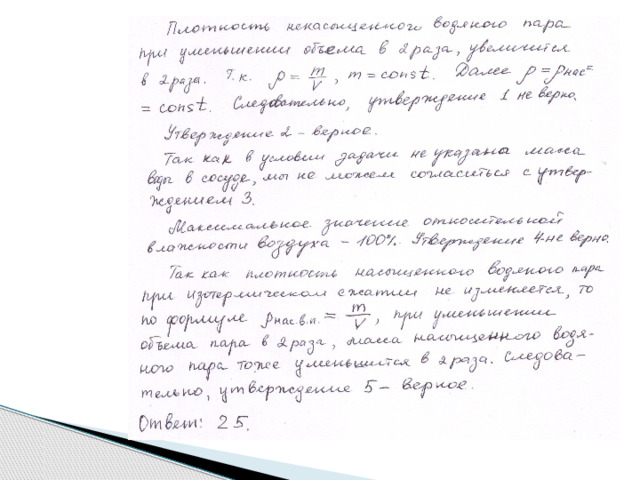 Плотность ненасыщенного водяного пара
при уменьшении объема в 2 раза, увеличится
в 2 раза. Т.к. ρ = m/V, m = const. Далее ρ = ρнас =
= const. Следовательно, утверждение 1 не верно.
Утверждение 2 – верное.
Так как в условии задачи не указана масса
воды в сосуде, мы не можем согласиться с утвер-
ждением 3.
Максимальное значение относительной
влажности воздуха – 100%. Утверждение 4-не верно.
Так как плотность насыщенного водяного пара
при изотермическом сжатии не изменяется, то
по формуле ρнас в.п. = m/V, при уменьшении
объема пара в 2 раза, масса насыщенного водя-
ного пара тоже уменьшится в 2 раза. Следова-
тельно, утверждение 5 – верное.
Ответ: 25.